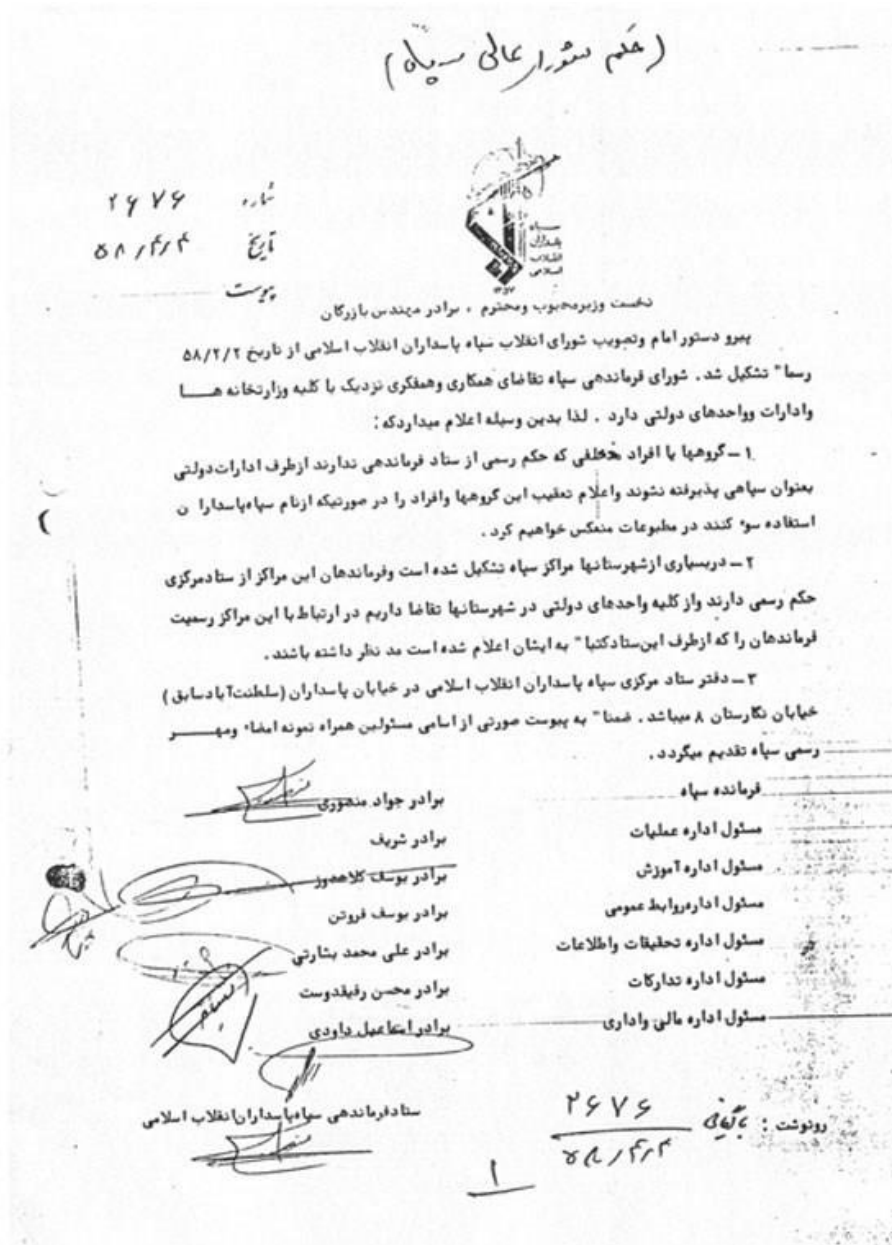 (حکم شورای عالی سپاه)
شماره ۲۶۷۶
تاریخ ۵۸/۴/۴
پیوست
سپاه
پاسداران
انقلاب
اسلامی
۱۳۵۷
نخست وزیر محبوب ومحترم ، برادر مهندس بازرگان
پیرو دستور امام وتصویب شورای انقلاب سپاه پاسداران انقلاب اسلامی از تاریخ ۵۸/۲/۲
رسما" تشکیل شد . شورای فرماندهی سپاه تقاضای همکاری وهمفکری نزدیک با کلیه وزارتخانه هـــا
وادارات وواحدهای دولتی دارد . لذا بدین وسیله اعلام میداردکه :
۱ – گروهها یا افراد مختلفی که حکم رسمی از ستاد فرماندهی ندارند ازطرف ادارات دولتی
بعنوان سپاهی پذیرفته نشوند واعلام تعقیب این گروهها وافراد را در صورتیکه ازنام سپاه پاسدارا ن
استفاده سوء کنند در مطبوعات منعکس خواهیم کرد .
۲ – دربسیاری ازشهرستانها مراکز سپاه تشکیل شده است وفرماندهان این مراکز از ستادمرکزی
حکم رسمی دارند واز کلیه واحدهای دولتی در شهرستانها تقاضا داریم در ارتباط با این مراکز رسمیت
فرماندهان را که ازطرف این ستاد کتبا" به ایشان اعلام شده است مد نظر داشته باشند .
۳ – دفتر ستاد مرکزی سپاه پاسداران انقلاب اسلامی در خیابان پاسداران (سلطنت آباد سابق)
خیابان نگارستان ۸ میباشد . ضمنا" به پیوست صورتی از اسامی مسئولین همراه نمونه امضاء ومهـــر
رسمی سپاه تقدیم میگردد .
فرمانده سپاه برادر جواد منصوری
مسئول اداره عملیات برادر شریف
مسئول اداره آموزش برادر یوسف کلاهدوز
مسئول اداره روابط عمومی برادر یوسف فروتن
مسئول اداره تحقیقات واطلاعات برادر علی محمد بشارتی
مسئول اداره تدارکات برادر محسن رفیقدوست
مسئول اداره مالی واداری برادر اسماعیل داودی
ستاد فرماندهی سپاه پاسداران انقلاب اسلامی
رونوشت : بایگانی ۲۶۷۶
۵۸/۴/۴
۱